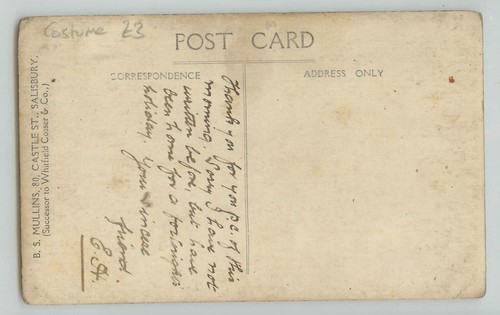 Costume 23
POST CARD
CORRESPONDENCE
ADDRESS ONLY
Thank you for your p.c. of this
morning. Sorry I have not
written before, but have
been home for a fortnight's
holiday. Your sincere
friend.
E.H.
B. S. MULLINS, 80, CASTLE ST., SALISBURY.
(Successor to Whitfield Cosser & Co.,)